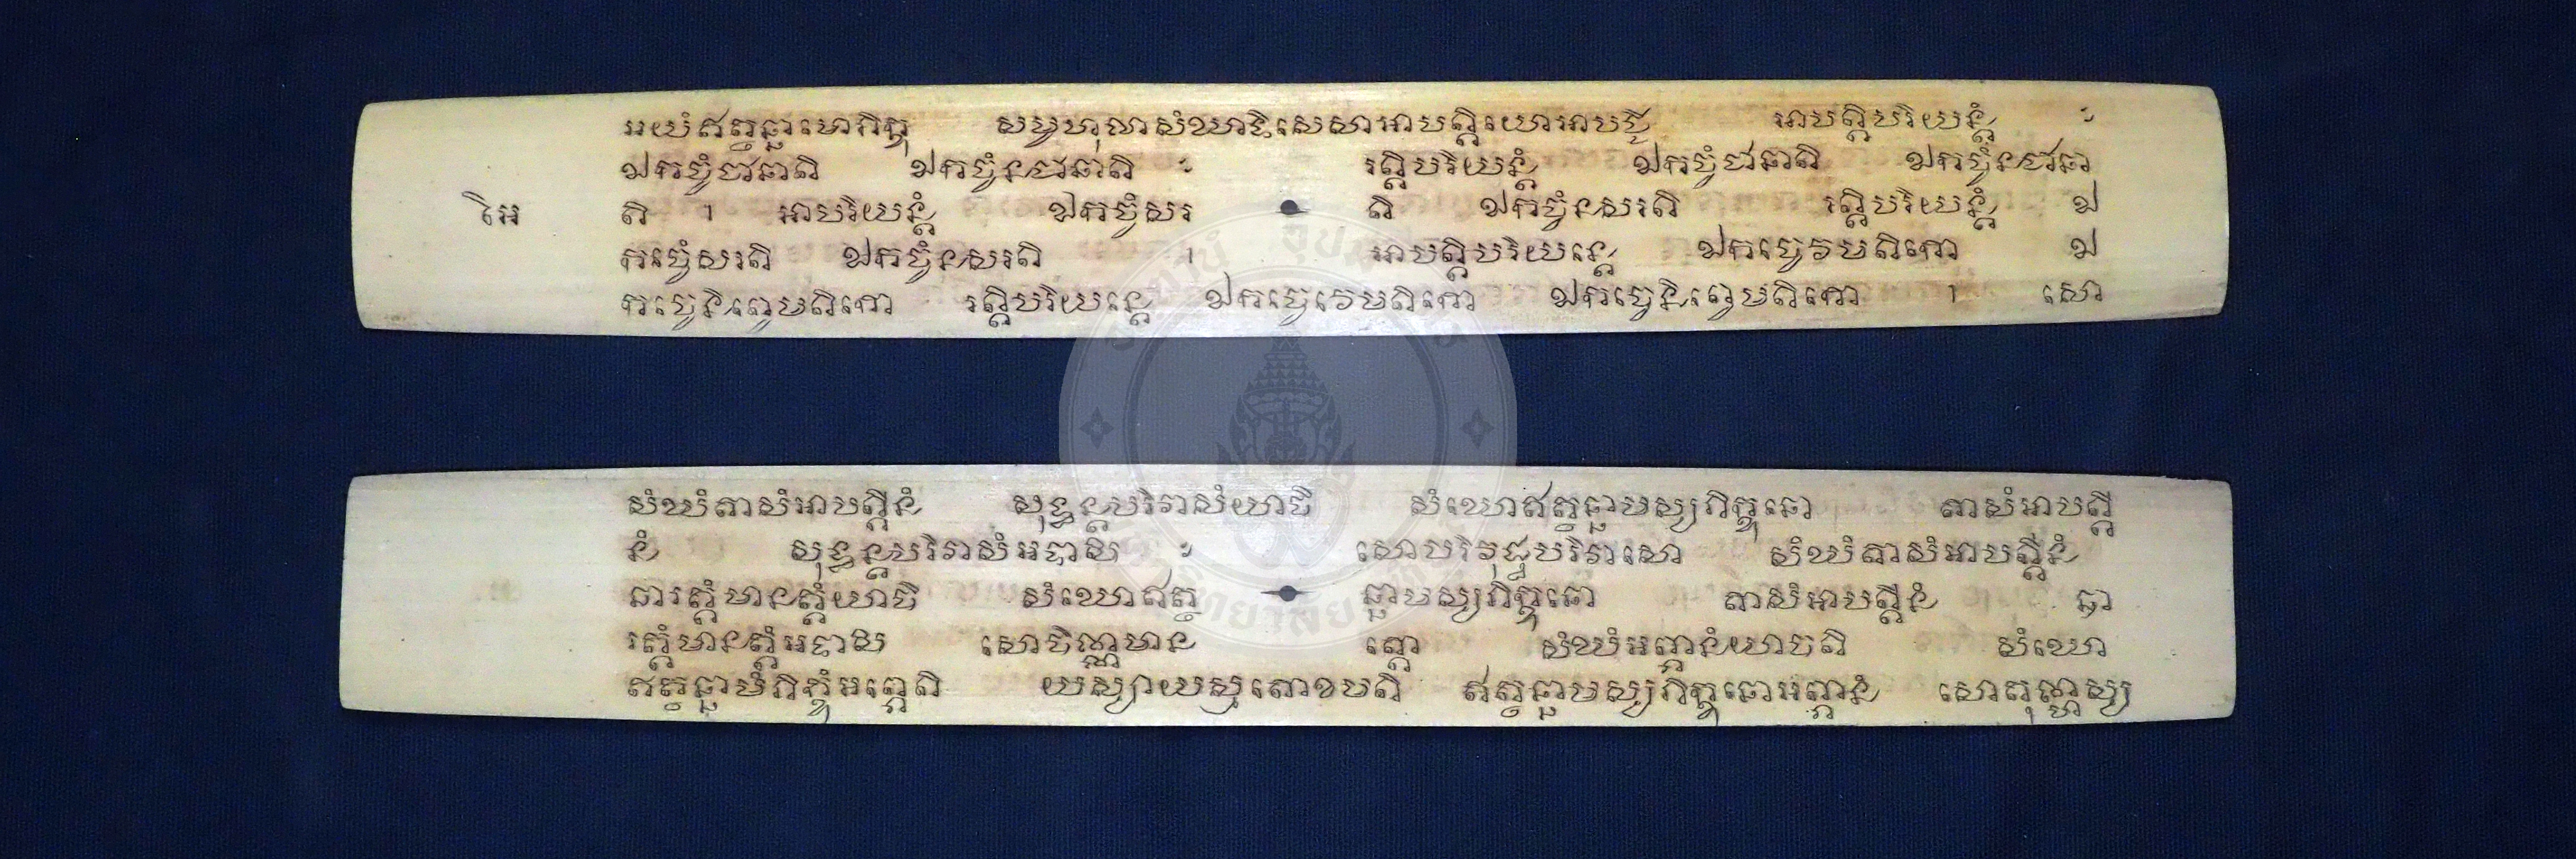 អយំឥត្ថន្នាមោភិក្ខុ សម្ពហុលាសំឃាទិសេសាអាបត្តិយោអាបជ្ជិ អាបត្តិបរិយន្តំ ៈ
ឯកច្ចំជានាតិ ឯកច្ចំនជានាតិ ៈ រត្តិបរិយន្តំ ឯកច្ចំជានាតិ ឯកច្ចំនជានា
តិ ។ អាបរិយន្តំ ឯកច្ចំសរ តិ ឯកច្ចំនសរតិ រត្តិបរិយន្តំ ឯ
កច្ចំសរតិ ឯកច្ចំនសរតិ ។ អាបត្តិបរិយន្តេ ឯកច្ចេវេមតិកោ ឯ
កច្ចេនិព្វេមតិកោ រត្តិបរិយន្តេ ឯកច្ចេវេមតិកោ ឯកច្ចេនិព្វេមតិកោ ។ សោ
សំឃំតាសំអាបត្តីនំ សុទ្ធន្តបរិវាសំយាចិ សំឃោឥត្ថន្នាមស្សភិក្ខុនោ តាសំអាបត្តី
នំ សុទ្ធន្តបរិវាសំអទាសិ ៈ សោបរិវុដ្ឋបរិវាសោ សំឃំតាសំអាបត្តីនំ
ឆារត្តំមានត្តំយាចិ សំឃោឥត្ថ ន្នាមស្សភិក្ខុនោ តាសំអាបត្តីនំ ឆា
រត្តំមានត្តំអទាសិ សោចិណ្ណមាន ត្តោ សំឃំអព្ភានំយាចតិ សំឃោ
ឥត្ថន្នាមំភិក្ខុំអព្ភេតិ យស្សាយស្មតោខមតិ ឥត្ថន្នាមស្សភិក្ខុនោអព្ភានំ សោតុណ្ហស្ស